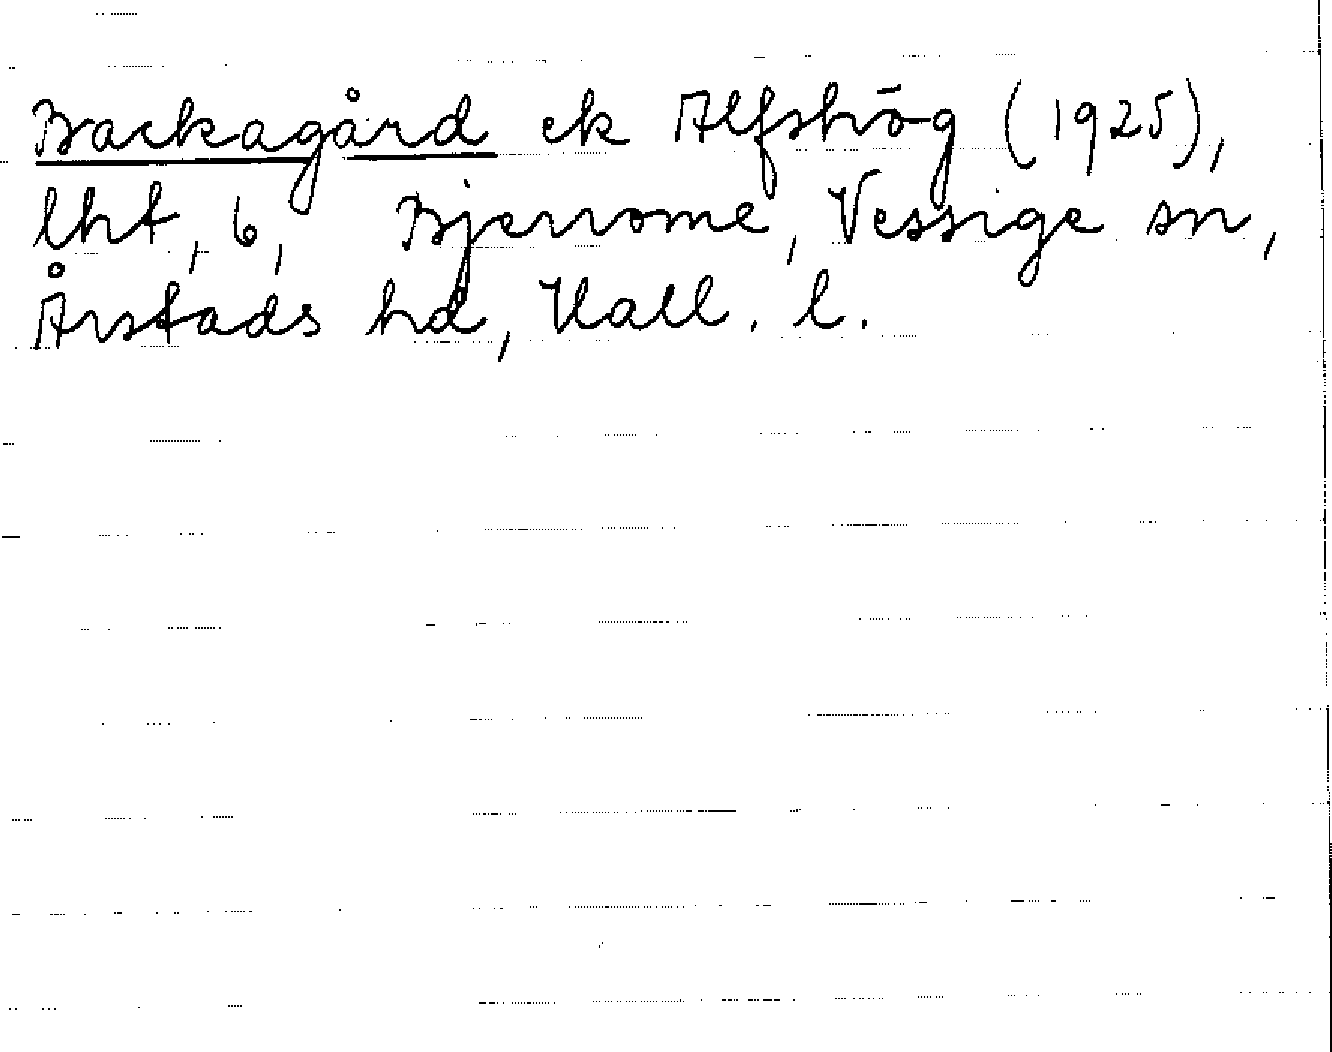 Backagård ek Alfshög (1925),
lht, b, Bjerrome, Vessige sn,
Årstads hd, Hall. l.